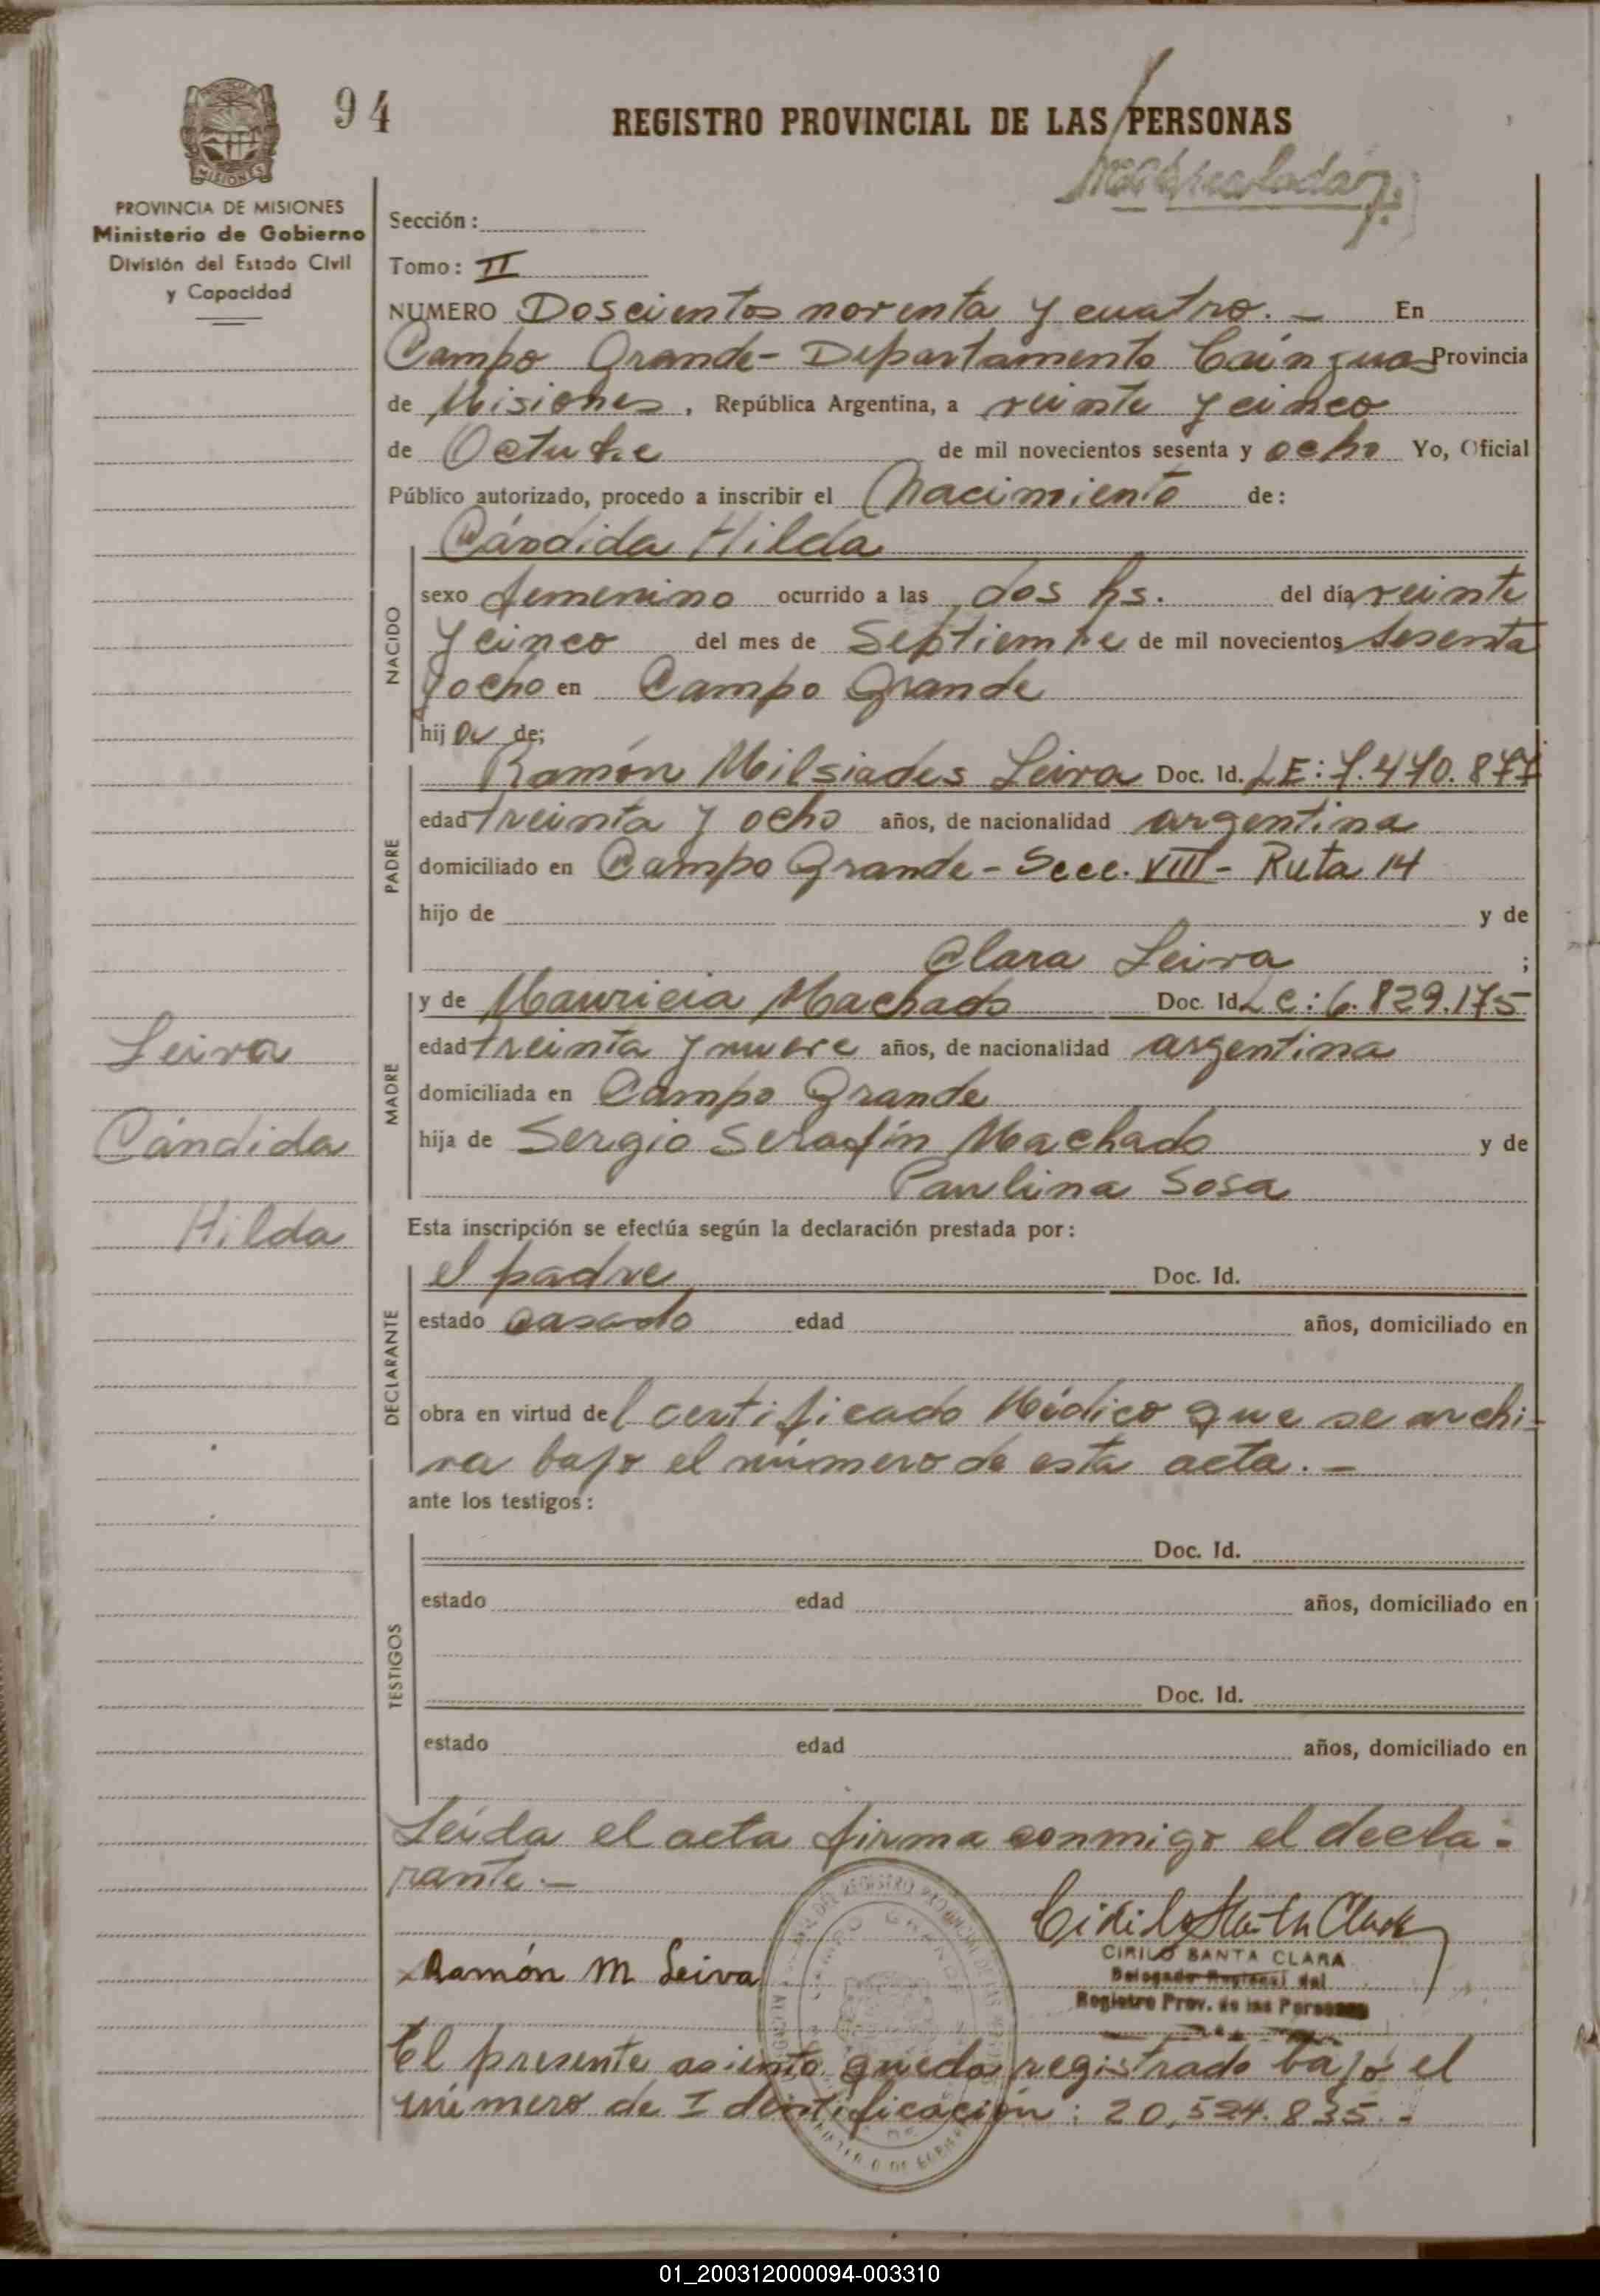 94
REGISTRO PROVINCIAL DE LAS PERSONAS
MISIONES
PROVINCIA DE MISIONES
Ministerio de Gobierno
División del Estado Civil
y Capacidad
Sección:
Tomo: II
NUMERO Doscientos noventa y cuatro. - En
Campo Grande - Departamento Cainguas Provincia
de Misiones, República Argentina, a veinte y cinco
de Octubre de mil novecientos sesenta y ocho Yo, Oficial
Público autorizado, procedo a inscribir el Nacimiento de:
Cándida Hilda
NACIDO
sexo femenino ocurrido a las dos hs. del día veinte
y cinco del mes de Septiembre de mil novecientos sesenta
y ocho en Campo Grande
hija de;
PADRE
Ramón Milsiades Leiva Doc. Id. LE: 7.470.877
edad treinta y ocho años, de nacionalidad argentina
domiciliado en Campo Grande - Secc. VIII - Ruta 14
hijo de y de
Clara Leiva ;
MADRE
y de Mauricia Machado Doc. Id. LC: 6.829.175
edad treinta y nueve años, de nacionalidad argentina
domiciliada en Campo Grande
hija de Sergio Serafín Machado y de
Paulina Sosa
Leiva
Cándida
Hilda
Esta inscripción se efectúa según la declaración prestada por:
DECLARANTE
el padre Doc. Id.
estado casado edad años, domiciliado en
obra en virtud del certificado Médico que se archi-
va bajo el número de esta acta. -
ante los testigos:
TESTIGOS
Doc. Id.
estado edad años, domiciliado en
Doc. Id.
estado edad años, domiciliado en
Leída el acta firma conmigo el decla-
rante. -
Cirilo Santa Clara
CIRILO SANTA CLARA
Delegado Regional del
Registro Prov. de las Personas
Ramón M Leiva
El presente asiento queda registrado bajo el
número de Identificación: 20,524.835. -
01_200312000094-003310